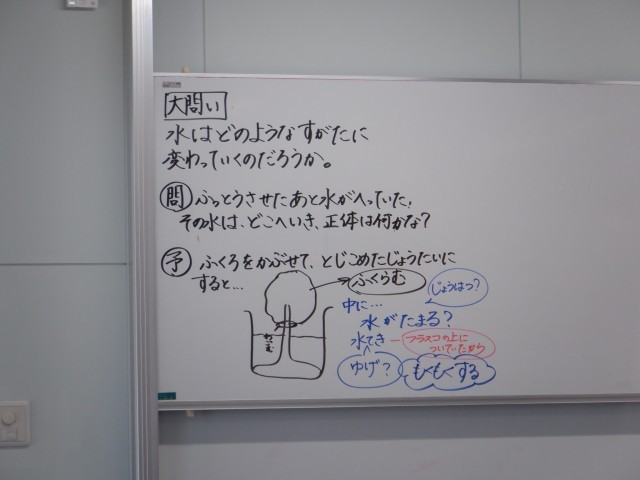 大問い
水はどのようなすがたに
変わっていくのだろうか。
問 ふっとうさせたあと水がへっていた。
その水は、どこへいき、正体は何かな?
予 ふくろをかぶせて、とじこめたじょうたいに
すると…
ふくらむ
じょうはつ?
中に…
水がたまる?
水てき
フラスコの上に
ついていたから
ゆげ?
もくもくする